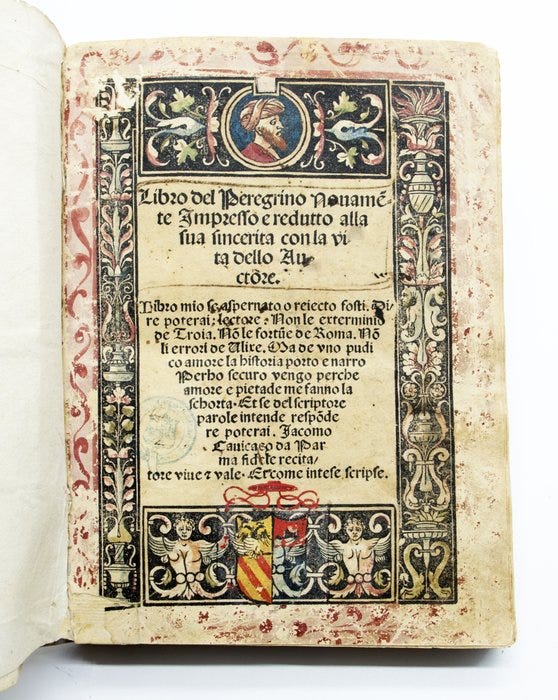 Libro del Peregrino Nouamē-
te Impresso e redutto alla
sua sincerita con la vi
ta dello Au-
ctore.
Libro mio se aspernato o reiecto fosti. Di
re poterai: lectore. Non le exterminio
de Troia. Nō le fortūe de Roma. Nō
li errori de Ulixe. Ma de vno pudi
co amore la historia porto e narro
Perho securo vengo perche
amore e pietade me fanno la
schorta. Et se del scriptore
parole intende respōde
re poterai. Jacomo
Cauicaeo da Par
ma fidele recita
tore viue ⁊ vale. Et come intese scripse.